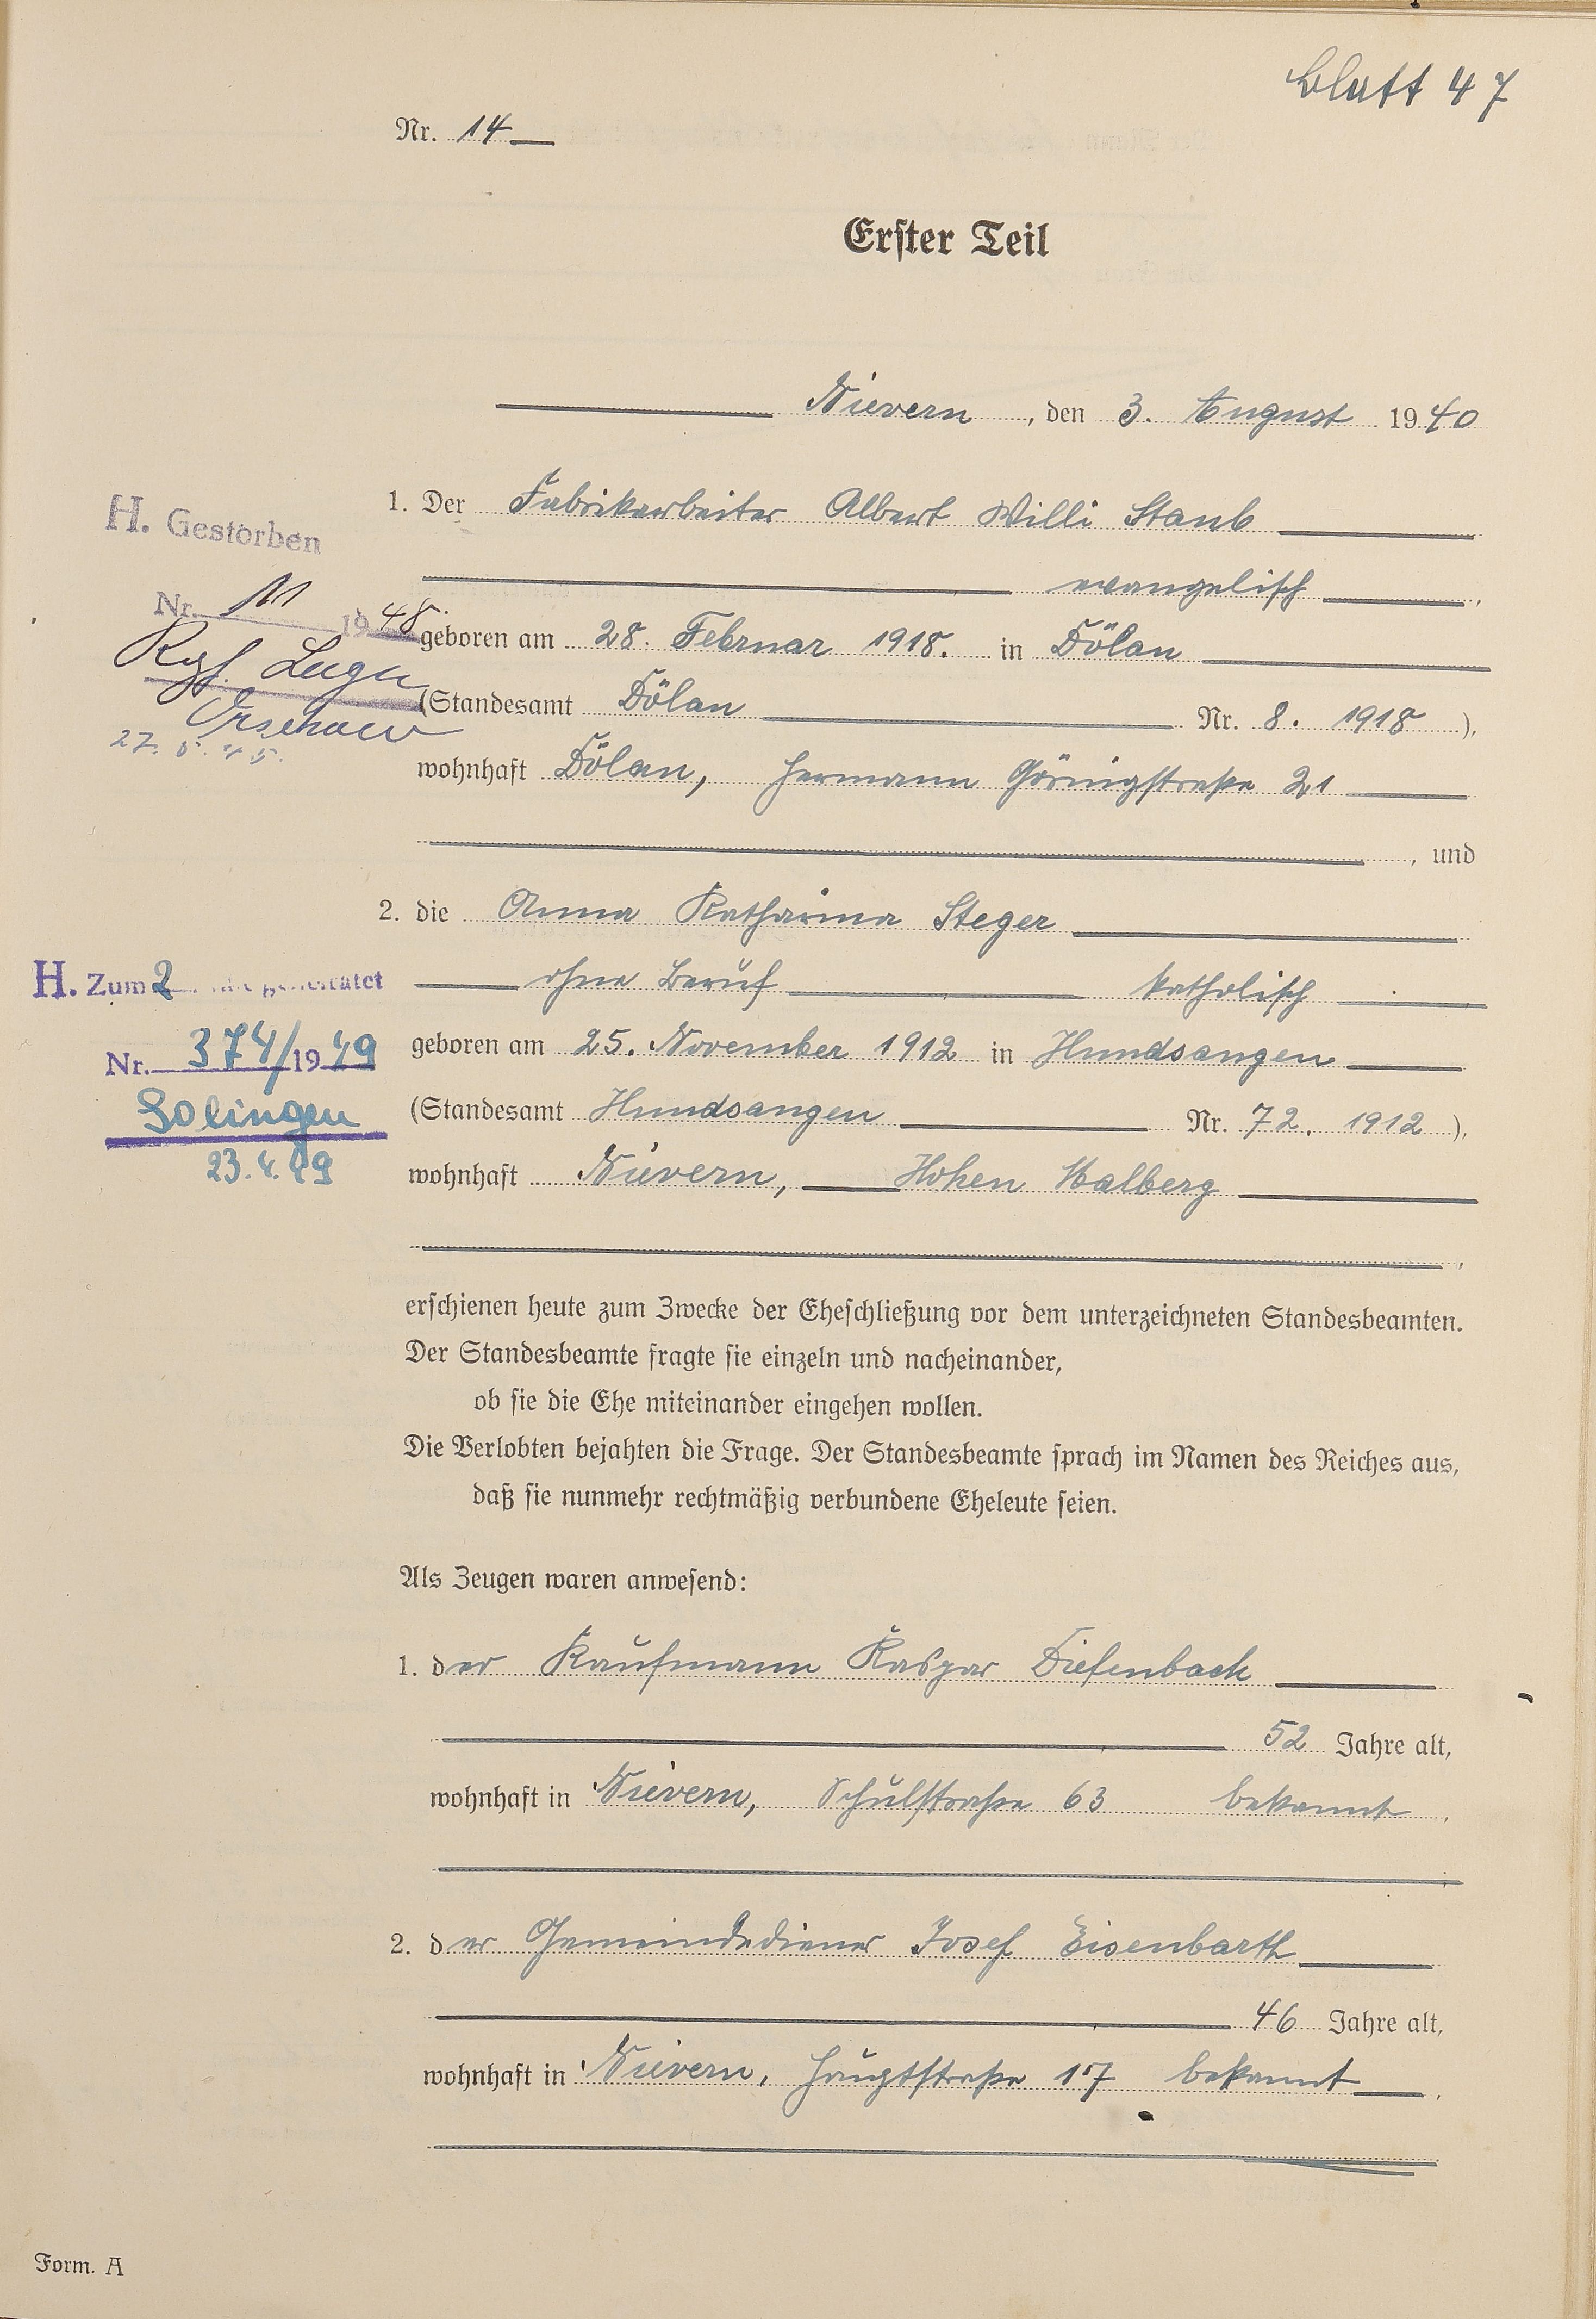 Blatt 47
Nr. 14
Erster Teil
Nievern, den 3. August 1940
1. Der Fabrikarbeiter Albert Willi Staub
evangelisch,
geboren am 28. Februar 1918. in Dölau
(Standesamt Dölau Nr. 8. 1918),
wohnhaft Dölau, Hermann Göringstraße 21
, und
2. die Anna Katharina Steger
ohne Beruf katholisch
geboren am 25. November 1912 in Hundsangen
(Standesamt Hundsangen Nr. 72. 1912),
wohnhaft Nievern, Hohen Malberg
,
erschienen heute zum Zwecke der Eheschließung vor dem unterzeichneten Standesbeamten.
Der Standesbeamte fragte sie einzeln und nacheinander,
ob sie die Ehe miteinander eingehen wollen.
Die Verlobten bejahten die Frage. Der Standesbeamte sprach im Namen des Reiches aus,
daß sie nunmehr rechtmäßig verbundene Eheleute seien.
Als Zeugen waren anwesend:
1. der Kaufmann Kaspar Diefenbach
52 Jahre alt,
wohnhaft in Nievern, Schulstraße 63 bekannt,
2. der Gemeindediener Josef Eisenbarth
46 Jahre alt,
wohnhaft in Nievern, Hauptstraße 17 bekannt.
H. Gestorben
Nr. 11 1948.
Kgf. Lager
27. 5. 45.
H. Zum 2 geheiratet
Nr. 374/1949
Solingen
23.4.49
Form. A